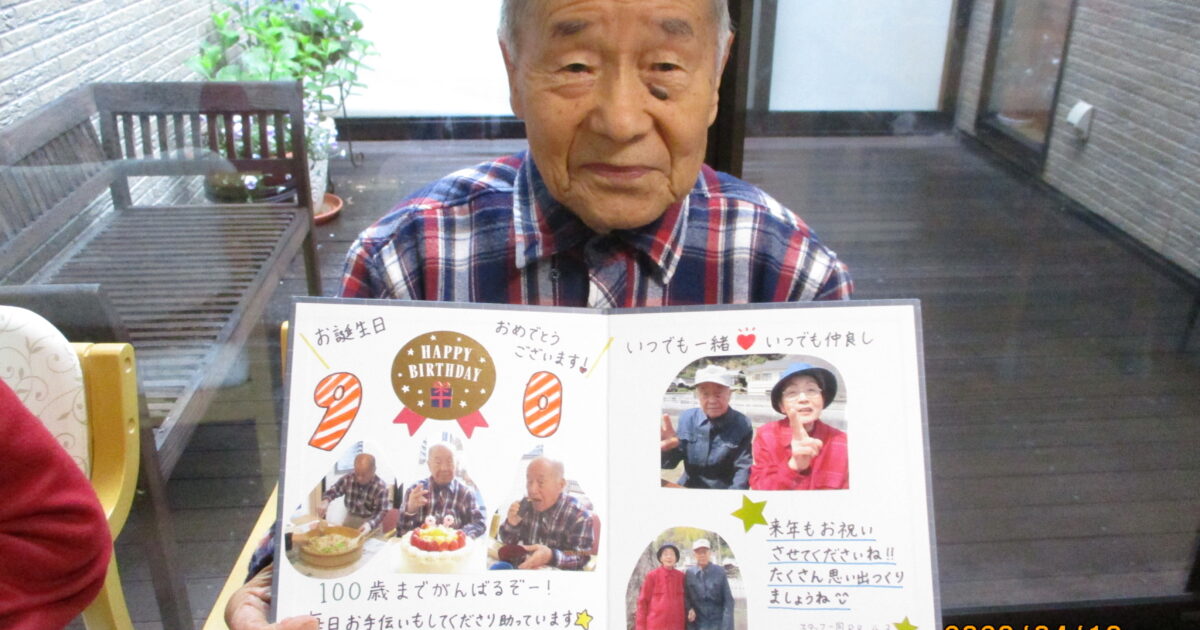 お誕生日
おめでとう
ございます!
HAPPY
BIRTHDAY
90
100歳までがんばるぞー!
毎日お手伝いもしてくださり助っています
いつでも一緒 いつでも仲良し
来年もお祝い
させてくださいね!!
たくさん思い出つくり
ましょうね